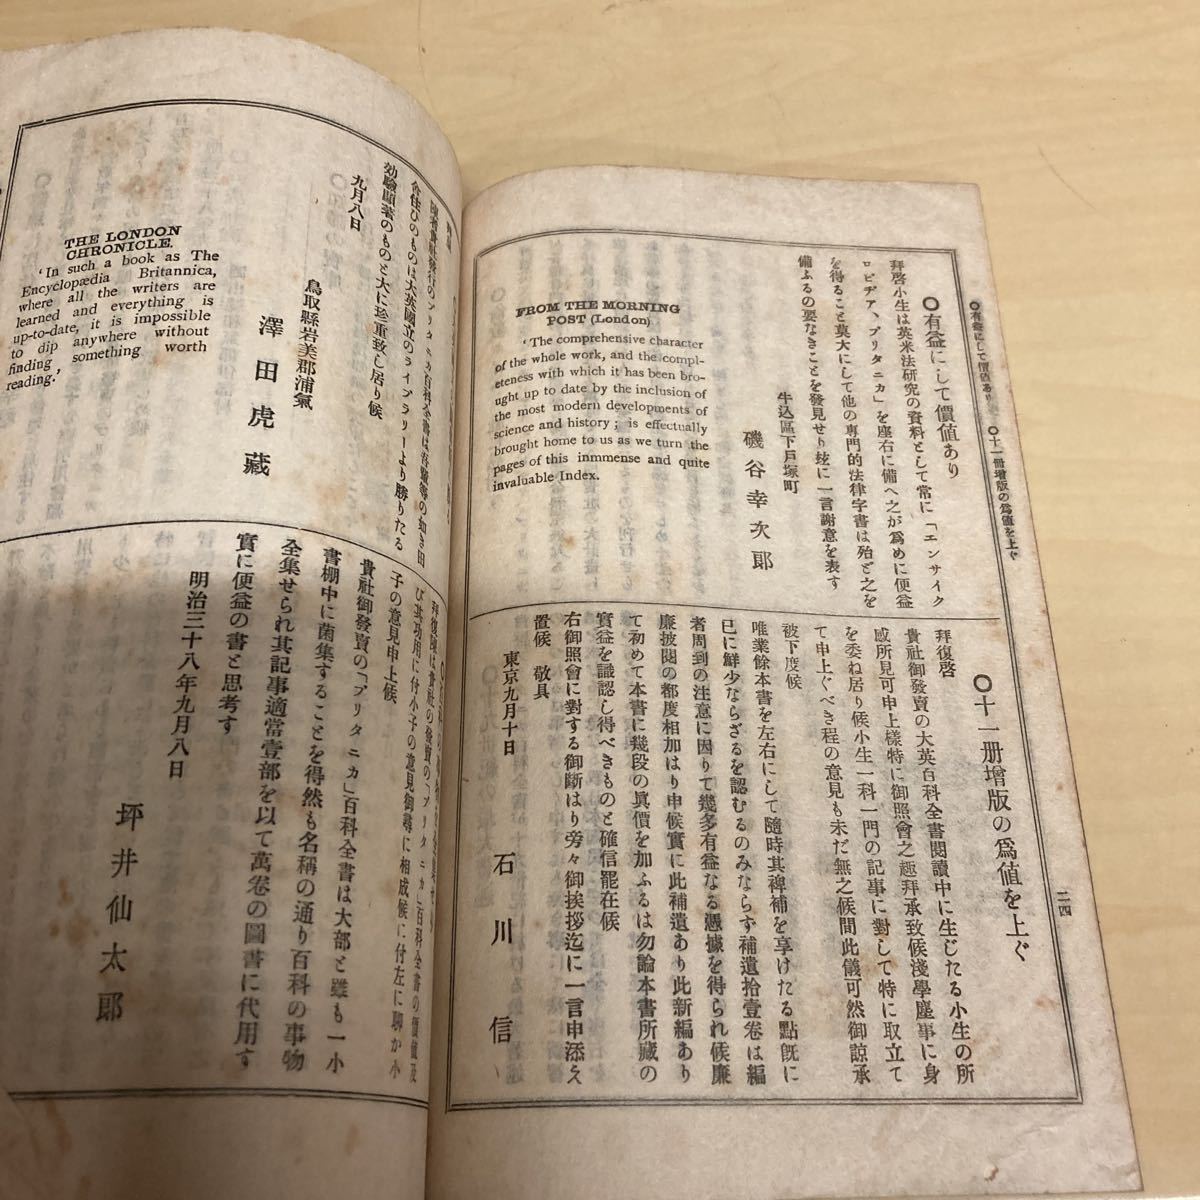 〇有益にして價値あり 〇十一冊增版の爲値を上ぐ
二四
〇有益にして價値あり
拜啓小生は英米法研究の資料として常に「エンサイク
ロビヂア、ブリタニカ」を座右に備へ之が爲めに便益
を得ること莫大にして他の專門的法律字書は殆ど之を
備ふるの要なきことを發見せり玆に一言謝意を表す
牛込區下戸塚町
磯谷幸次郎
FROM THE MORNING
POST (London)
‘The comprehensive character
of the whole work, and the compl-
eteness with which it has been bro-
ught up to date by the inclusion of
the most modern developments of
science and history; is effectually
brought home to us as we turn the
pages of this inmmense and quite
invaluable Index.
〇十一冊增版の爲値を上ぐ
拜復啓
貴社御發賣の大英百科全書閱讀中に生じたる小生の所
感所見可申上樣特に御照會之趣拜承致候淺學塵事に身
を委ね居り候小生一科一門の記事に對して特に取立て
て申上ぐべき程の意見も未だ無之候間此儀可然御諒承
被下度候
唯業餘本書を左右にして隨時其裨補を享けたる點既に
已に鮮少ならざるを認むるのみならず補遺拾壹卷は編
者周到の注意に因りて幾多有益なる憑據を得られ候廉
廉披閱の都度相加はり申候實に此補遺あり此新編あり
て初めて本書に幾段の眞價を加ふるは勿論本書所藏の
實益を識認し得べきものと確信罷在候
右御照會に對する御斷はり旁々御挨拶迄に一言申添え
置候 敬具
東京九月十日
石川信
陳者貴社發行のブリタニカ百科全書は吾輩等の如き田
舍住ひのものは大英國立のライブラリーより勝りたる
効驗顯著のものと大に珍重致し居り候
九月八日
鳥取縣岩美郡浦氣
澤田虎藏
THE LONDON
CHRONICLE.
‘In such a book as The
Encyclopædia Britannica,
where all the writers are
learned and everything is
up-to-date, it is impossible
to dip anywhere without
finding something worth
reading.’
拜復陳は貴社の發賣の「ブリタニカ」百科全書の價値及
び其功用に付小子の意見御尋に相成候に付左に聊か小
子の意見申上候
貴社御發賣の「ブリタニカ」百科全書は大部と雖も一小
書棚中に蒐集することを得然も名稱の通り百科の事物
全集せられ其記事適當壹部を以て萬卷の圖書に代用す
實に便益の書と思考す
明治三十八年九月八日
坪井仙太郎